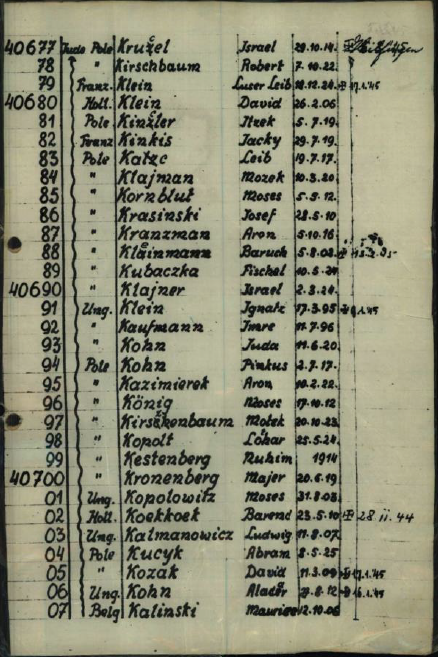 40677 Jude Pole Kružel Israel 29.10.14.
78 " Kirschbaum Robert 7.10.22.
79 Franz. Klein Luser Leib 18.12.24. 17.1.45
40680 Holl. Klein David 26.2.06
81 Pole Kinzler Itzek 5.7.19.
82 Franz Kinkis Jacky 29.7.19.
83 Pole Katze Leib 19.7.17.
84 " Klajman Mozek 10.3.20.
85 " Kornblut Moses 5.5.12.
86 " Krasinski Josef 28.5.10
87 " Kranzman Aron 5.10.16.
88 " Kleinmann Baruch 5.8.08.
89 " Kubaczka Fischel 10.5.24
40690 " Klajner Israel 2.3.24.
91 Ung. Klein Ignatz 17.3.95
92 " Kaufmann Imre 11.7.96
93 " Kohn Juda 11.6.20.
94 Pole Kohn Pinkus 2.7.17.
95 " Kazimierek Aron 10.2.22.
96 " König Moses 17.10.12
97 " Kirschenbaum Motek 20.10.23.
98 " Kopolt Lothar 25.5.24.
99 " Kestenberg Ruhim 1914
40700 " Kronenberg Majer 20.6.19
01 Ung. Kopolowitz Moses 31.8.08.
02 Holl. Koekkoek Barend 23.5.10 28.11.44
03 Ung. Kalmanowicz Ludwig 11.8.07.
04 Pole Kucyk Abram 8.5.25
05 " Kozak David 11.3.09 17.1.45
06 Ung. Kohn Aladar 27.8.12 16.1.45
07 Belg Kalinski Maurice 12.10.06